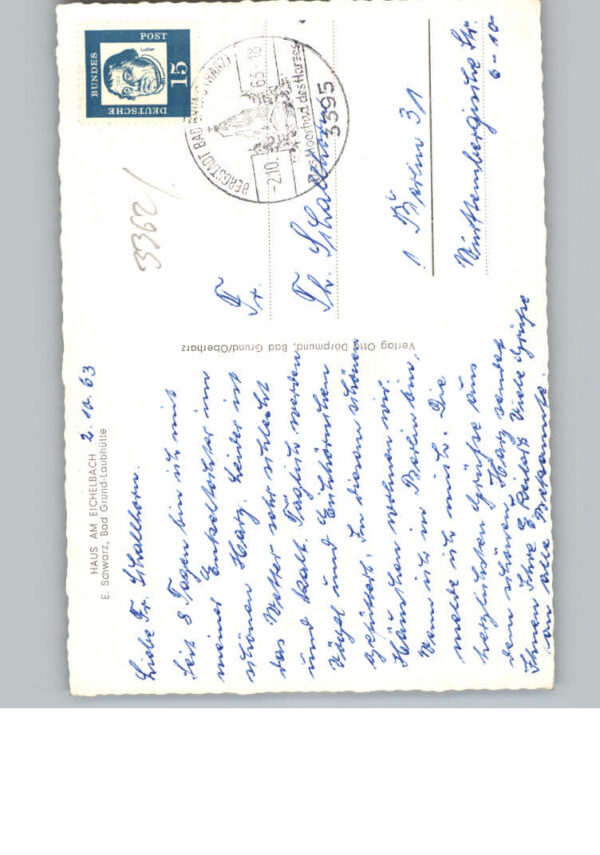 HAUS AM EICHELBACH
E. Schwarz, Bad Grund-Laubhütte
2.10.63
Liebe Fr. Schallhorn.
Seit 8 Tagen bin ich mit
meinen Enkeltochter im
schönen Harz. Leider ist
das Wetter sehr schlecht
und kalt. Täglich werden
Vögel und Eichhörnchen
gefüttert. In diesem schönen
Häuschen wohnen wir.
Wenn ich in Berlin bin,
melde ich mich. Die
herzlichsten Grüße aus
dem schönen Harz sendet
Ihnen Ihre Viele Grüße
an alle Bekannte.
Verlag Otto Dörpmund, Bad Grund/Oberharz
DEUTSCHE
BUNDES
POST
15
Luther
BERGSTADT BAD GRUND (HARZ)
-2.10.63.-18
Moorbad des Harzes
3395
3362/
Fr.
Fr. Schallhorn
1 Berlin 31
Württembergische Str.
6-10